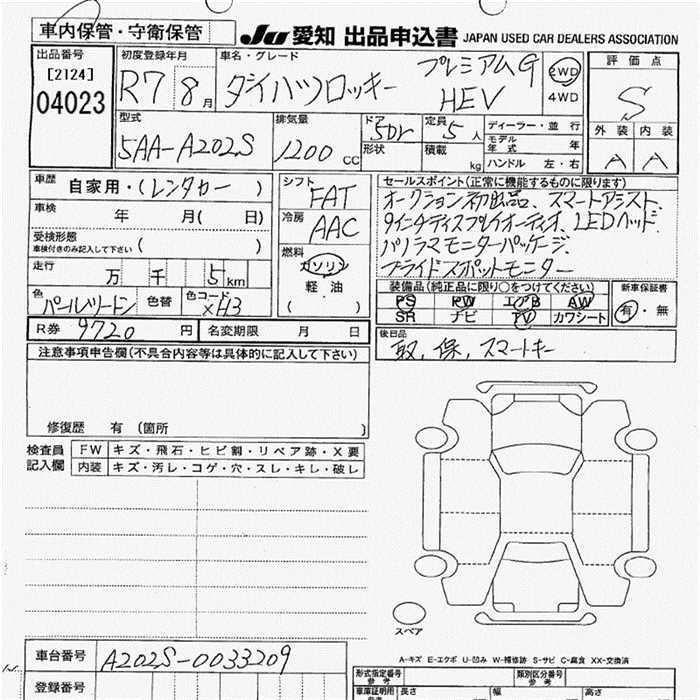 車内保管・守衛保管
JU 愛知 出品申込書 JAPAN USED CAR DEALERS ASSOCIATION
出品番号
[2124]
04023
初度登録年月
R7 8月
車名・グレード
ダイハツロッキー
プレミアムG
HEV
2WD
4WD
評価点
S
外装 内装
A A
型式
5AA-A202S
排気量
1200 CC
ドア
5Dr
形状
定員
5人
積載
kg
ディーラー・並行
モデル年式 年
ハンドル 左・右
車歴
自家用・(レンタカー )
車検
年 月( 日)
受検形態
車検付きのみ記入して下さい ( )
走行
万 千 5km
色
パールリードン
色替
色コード
XH3
シフト
FAT
冷房
AAC
燃料
ガソリン
・
軽油
( )
セールスポイント(正常に機能するものに限ります)
オークション初出品、スマートアシスト、
9インチディスプレイオーディオ、LEDヘッド、
パノラマモニターパッケージ、
ブライドスポットモニター
装備品(純正品に限り○をつけてください)
PS PW エアB AW
SR ナビ TV カワシート
新車保証書
有・無
R券 9720 円
名変期限 月 日
後日品
取、保、スマートキー
注意事項申告欄(不具合内容等は具体的に記入して下さい)
修復歴 有 (箇所 )
検査員
記入欄
FW キズ・飛石・ヒビ割・リペア跡・X要
内装 キズ・汚レ・コゲ・穴・スレ・キレ・破レ
スペア
A-キズ E-エクボ U-凹み W-補修跡 S-サビ C-腐食 XX-交換済
車台番号
A202S-0033209
登録番号
形式指定番号
参考
類別区分番号
参考
車庫証明用
参考
長さ
幅
高さ